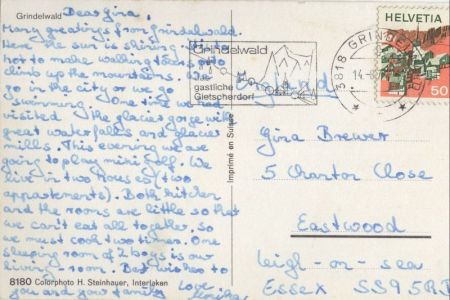 Grindelwald
Dear Gina,
Many greetings from Grindelwald.
Here the sun is shining. It's
hot to make walking tours or to
climb up the mountains. We
go in the city or we go
swimming. One time we had
visited the glacier gorge with
great waterfalls and glacier
mills. This evening we are
going to play mini golf. We
live in two houses (two
appartements). Both kitchen
and the rooms are little so that
we can't eat all together, so
we must cook two times. One
sleeping room of 2 boys is our
living-room. Best wishes to
you and your family
Love
8180 Colorphoto H. Steinhauer, Interlaken
Imprimé en Suisse
Grindelwald
Das
gastliche
Gletscherdorf
3818 GRINDELWALD
14.
HELVETIA
50
England
Gina Brewer
5 Chantor Close
Eastwood
Leigh-on-sea
Essex SS9 5R